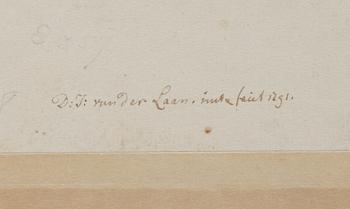 D: J: van der Laan. inv & fecit 1791.